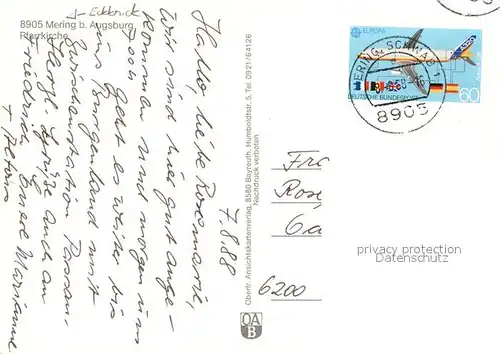 J-Eckbrick
8905 Mering b. Augsburg
Pfarrkirche
7.8.88
Hallo, liebe Rosemarie,
Wir sind hier gut ange-
kommen und morgen um
geht es weiter bis
ins Burgenland mit
Zwischenstation Passau.
Herzl. Grüße auch an
Friedrich
Marianne
+ Alfons
Oberfr. Ansichtskartenverlag, 8580 Bayreuth, Humboldtstr. 5, Tel. 0921/64126
Nachdruck verboten
OA
B
EUROPA
DEUTSCHE BUNDESPOST
60
MERING, SCHWAB 1
8905
Fr
Rose
6200
privacy protection
Datenschutz